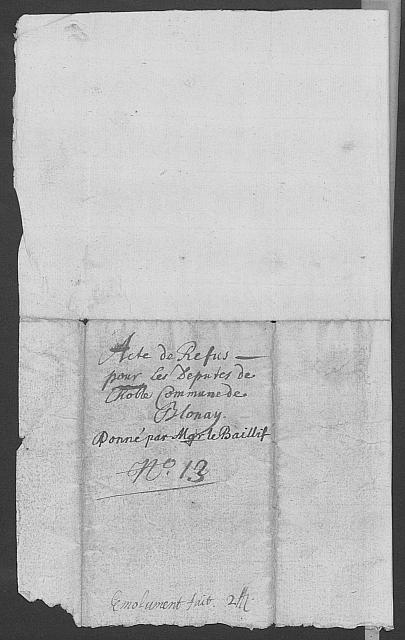 Acte de Refus —
pour les Deputés de
Noble Commune de
Blonay.
Donné par Mgr le Baillif
N.º 13
Emolument fait. 2